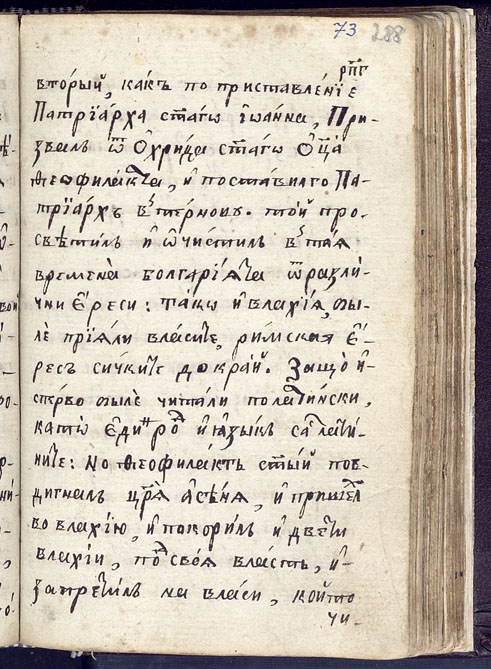 73 288
рп҃г
вторы́й, ка́къ по приставле́нїе
Патрїа́рха ст҃а́гѡ і҆ѡа́нна, При-
зва́лъ ѿ О҆хри́да ст҃а́гѡ О҆ц҃а̀
ѳеѡфила́кта, и҆ поста́вилъ го Па-
трїа́рхъ въ те́рновꙋ. то́й про-
свѣти́лъ и҆ ѡ҆чи́стилъ въ та́ѧ
времена̀ болга́рїѧта ѿ разли́-
чни Е҆́реси: та́кѡ и҆ вла́хїѧ, бы-
лѐ прїѧ́ли вла́сите, ри́мскаѧ Е҆́-
ресъ си́чките докра́й. Защо̀ и҆-
спе́рво былѐ чита́ли полати́нски,
като̀ Е҆ди́нъ ро́дъ и҆ ꙗ҆зы́къ са̀ лати́-
ните: Но ѳеѡфила́ктъ ст҃ы́й под-
дигна́лъ цр҃ѧ̀ а҆сѣ́нѧ, и҆ прише́лъ
во вла́хїю, и҆ покори́лъ и҆ две́ти
вла́хїи, по́дъ своѧ̀ вла́сть, и҆
запрети́лъ на вла́си, който
чи-